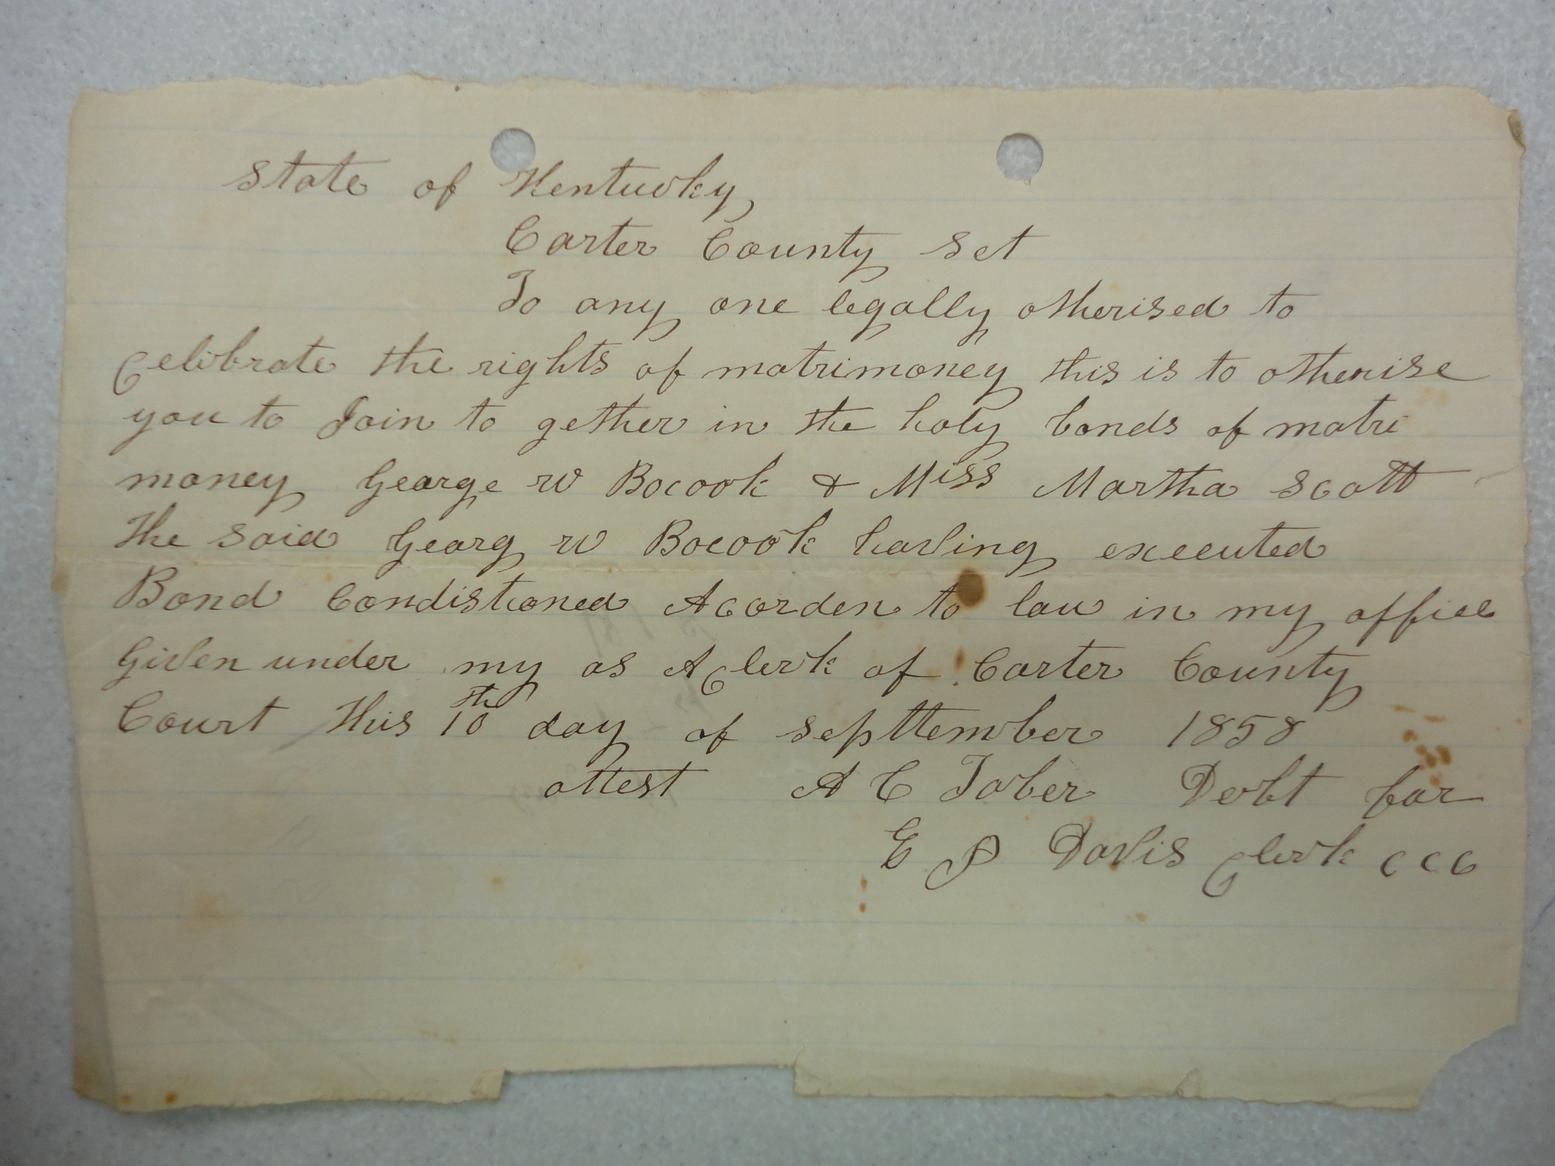 State of Kentucky,
Carter County Sct
To any one legally otherised to
Celibrate the rights of matrimoney this is to otherise
you to Join to gether in the holy bonds of matri
money George W Bocook & Miss Martha Scott
The Said Georg W Bocook having executed
Bond Condistioned Acorden to law in my office
Given under my as A Clerk of Carter County
Court This 10th day of Septtember 1858
attest A C Taber Debt for
E P Davis Clerk CCC